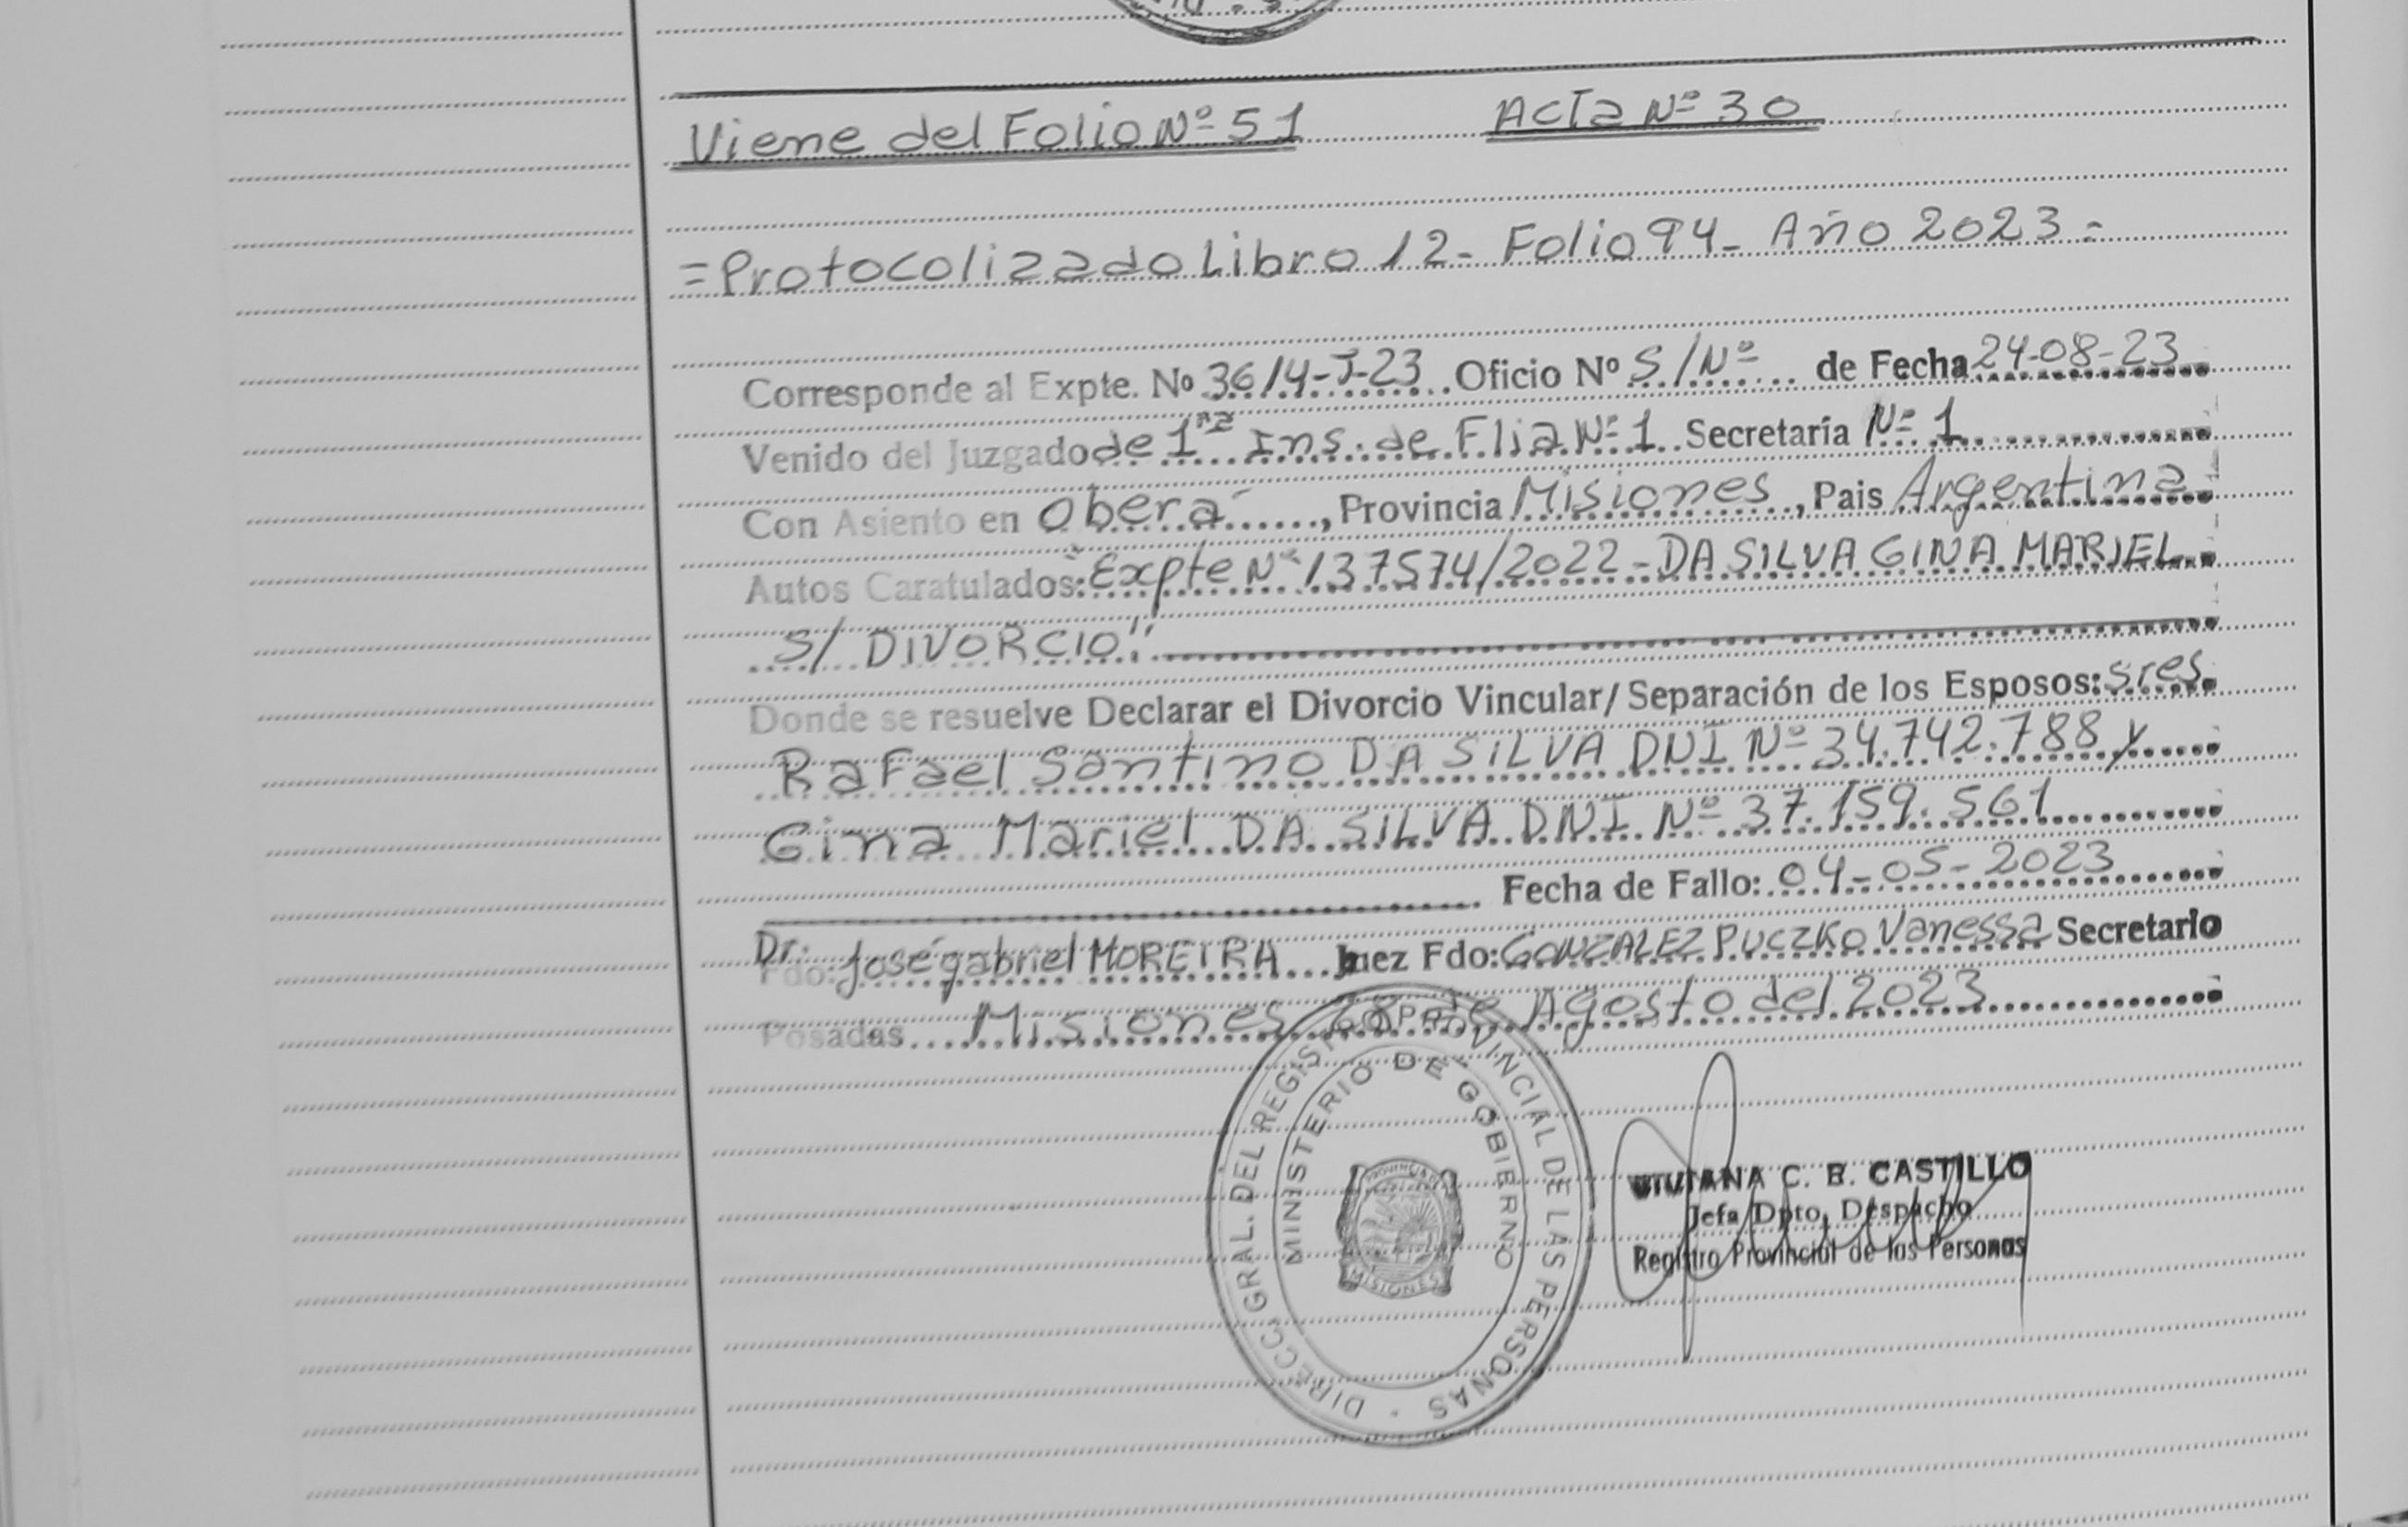 Viene del Folio Nº 51 Acta Nº 30
=Protocolizado Libro 12- Folio 94- Año 2023=
Corresponde al Expte. Nº 3614-J-23 Oficio Nº S/Nº de Fecha 24-08-23
Venido del Juzgado de 1ra Ins. de Flia Nº 1 Secretaría Nº 1
Con Asiento en Oberá, Provincia Misiones, Pais Argentina
Autos Caratulados: "Expte Nº 137574/2022-DA SILVA GINA MARIEL
S/ DIVORCIO"
Donde se resuelve Declarar el Divorcio Vincular/Separación de los Esposos: sres.
Rafael Santino DA SILVA DNI Nº 34.742.788 y
Gina Mariel DA SILVA DNI Nº 37.159.561
Fecha de Fallo: 04-05-2023
Fdo: Dr. José gabriel MOREIRA Juez Fdo: GONZALEZ PUCZKO Vanessa Secretario
Posadas Misiones 28 de Agosto del 2023
DIRECC. GRAL. DEL REGISTRO PROVINCIAL DE LAS PERSONAS
MINISTERIO DE GOBIERNO
PROVINCIA
MISIONES
VIVIANA C. B. CASTILLO
Jefa Dpto. Despacho
Registro Provincial de las Personas